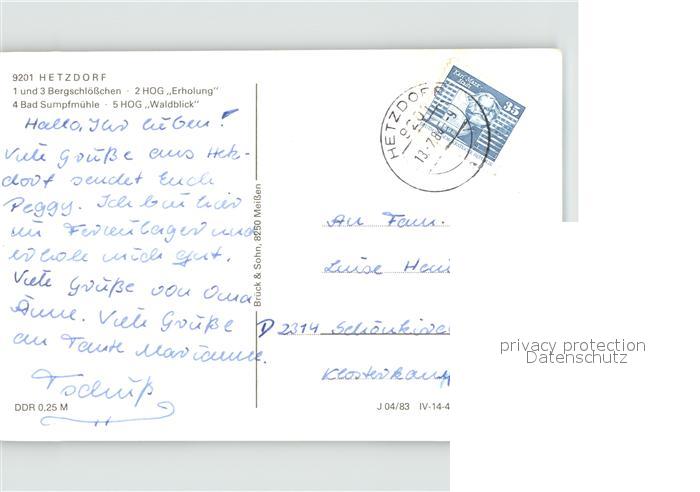 9201 HETZDORF
1 und 3 Bergschlößchen · 2 HOG „Erholung"
4 Bad Sumpfmühle · 5 HOG „Waldblick"
Hallo, Ihr lieben!
Viele Grüße aus Hetz-
dorf sendet Euch
Peggy. Ich bin hier
im Ferienlager und
erhole mich gut.
Viele Grüße von Oma
Änne. Viele Grüße
an Tante Marianne.
Tschüß
DDR 0,25 M
Brück & Sohn, 8250 Meißen
HETZDORF
9201
13.7.8
Karl-Marx-
35
An Fam.
Luise
D 2314 Schönkirch
Klosterkam
J 04/83 IV-14-4
privacy protection
Datenschutz